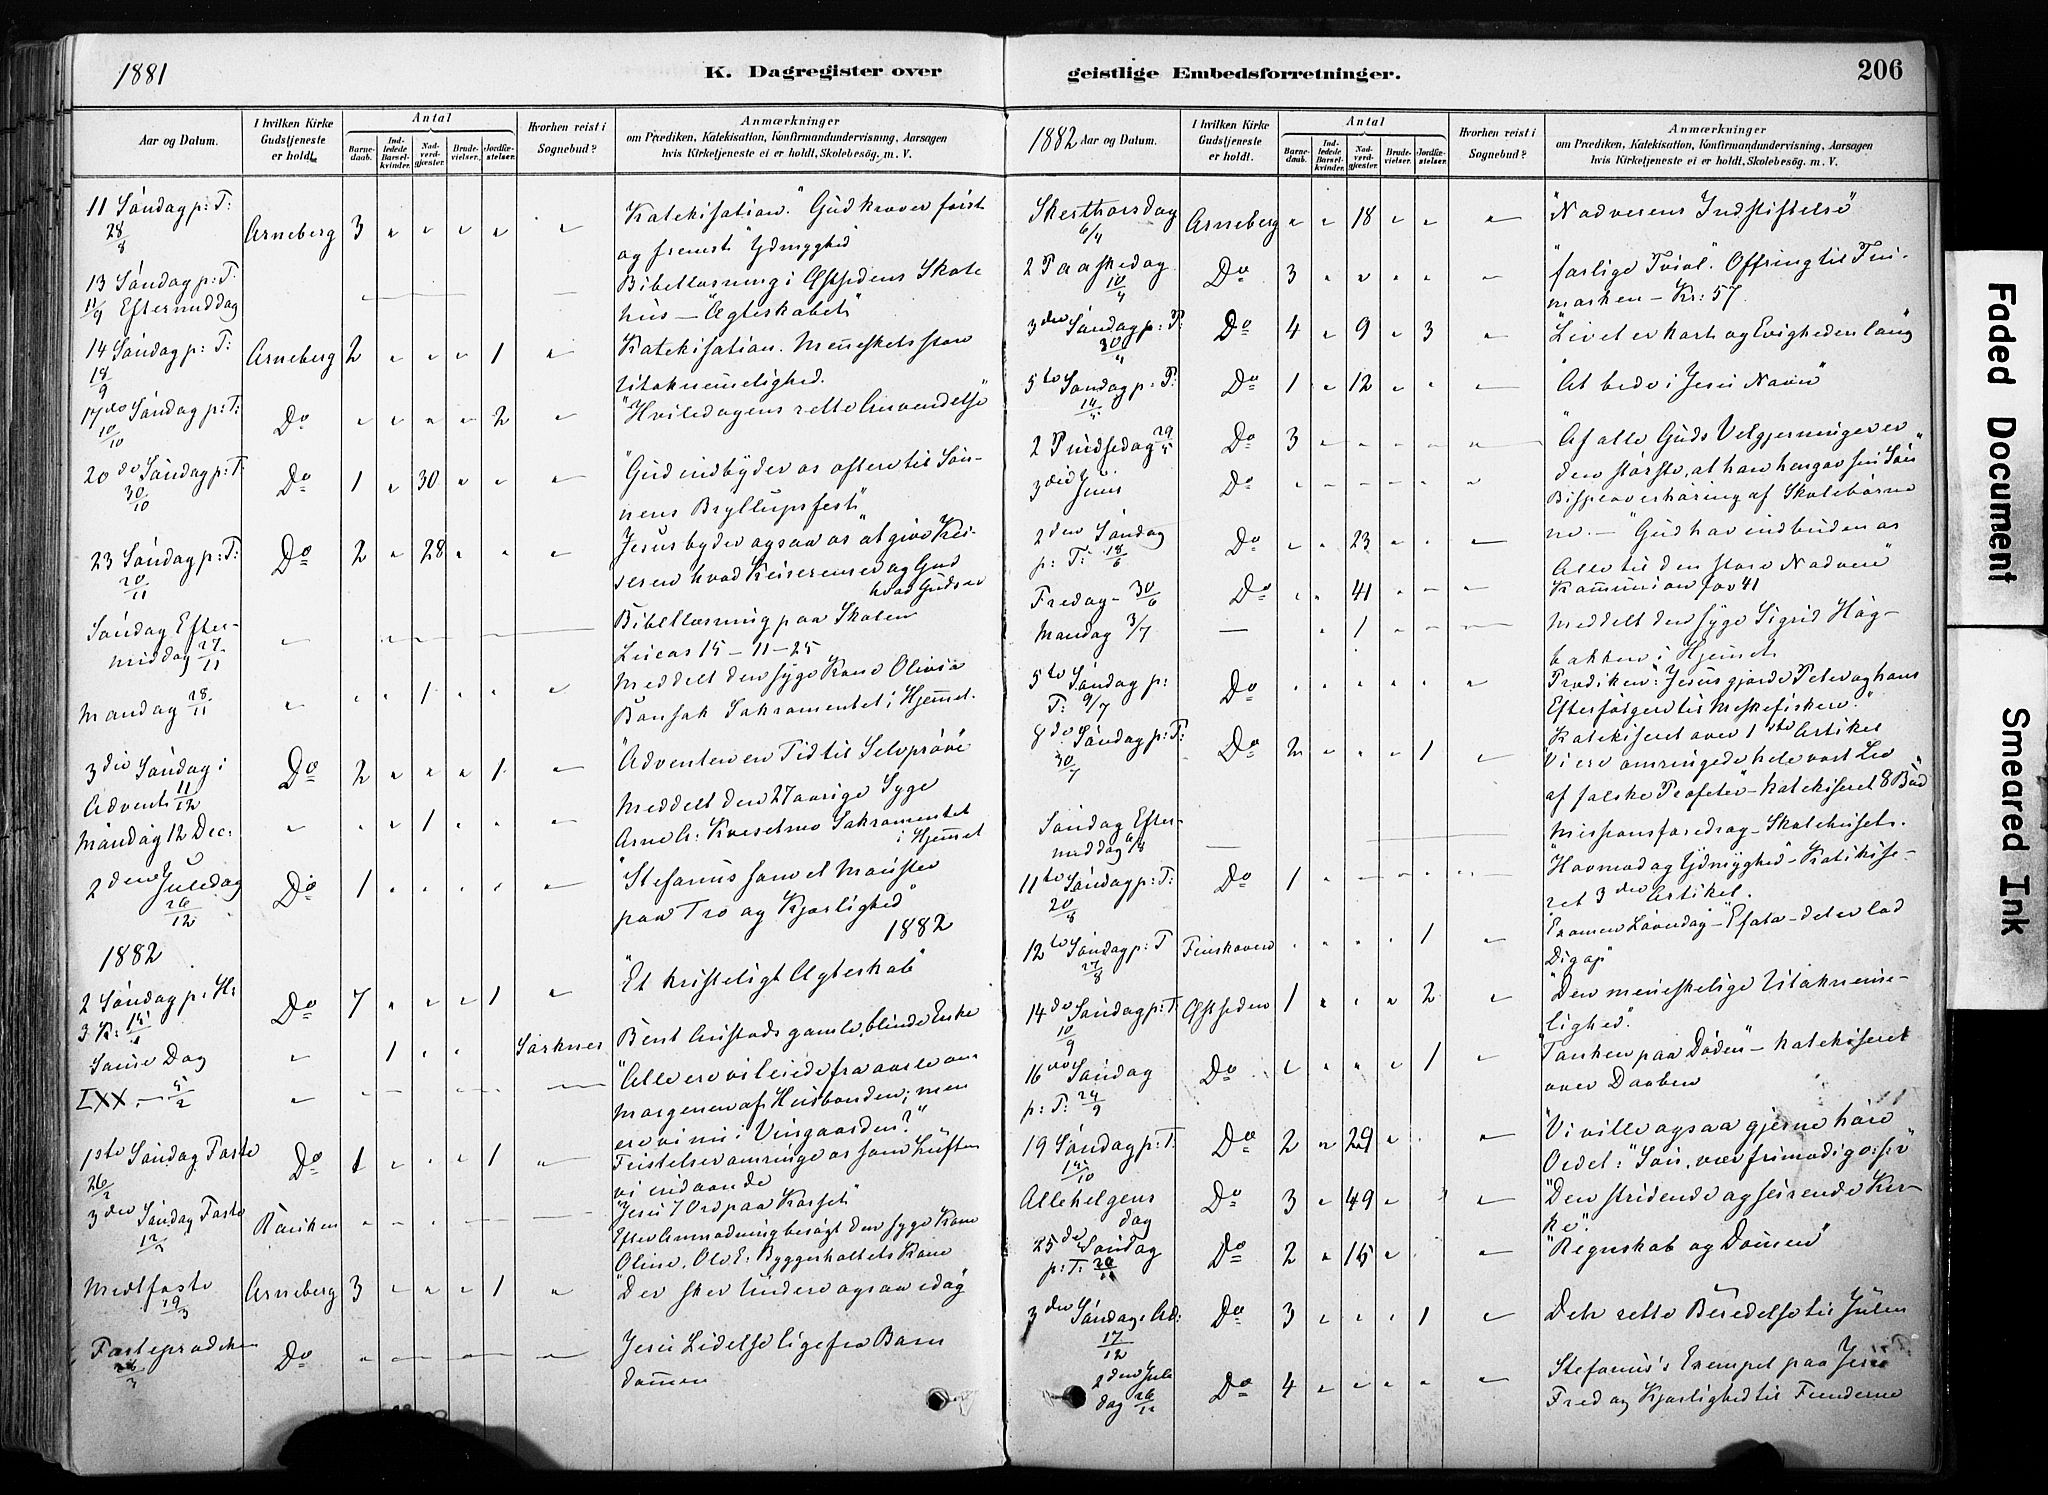 1881
K. Dagregister over
Aar og Datum.
I hvilken Kirke
Gudstjeneste
er holdt.
Antal
Barne-
daab.
Ind-
ledede
Barsel-
kvinder.
Nad-
verd-
gjæster.
Brude-
vielser.
Jordfæ-
stelser.
Hvorhen reist i
Sognebud?
Anmærkninger
om Prædiken, Katekisation, Konfirmandundervisning, Aarsagen
hvis Kirketjeneste ei er holdt, Skolebesög, m. V.
11 Søndag p: T:
28/8 Arneberg 3 " " " " " Katekisation. "Gud kræver først
og fremst Ydmyghed
13 Søndag p: T:
11/9 Eftermiddag Bibellæsning i Østsidens Skole
hus — "Ægteskabet"
14 Søndag p: T:
18/9 Arneberg 2 " " " 1 " Katekisation. Menneskets store
Utaknemelighed.
17de Søndag p: T:
10/10 Do " " " " 2 " "Hviledagens rette Anvendelse"
20de Søndag p: T:
30/10 Do 1 " 30 " " " "Gud indbyder os ofte til Søn-
nens Bryllupsfest"
23 Søndag p: T:
20/11 Do 2 " 28 " " " Jesus byder ogsaa os "at give Kei-
seren hvad Keiserens er og Gud
hvad Guds er
Søndag Efter-
middag 27/11 " " " Bibellæsning paa Skolen
Lucas 15 - 11 - 25
Mandag 28/11 " " " 1 " " " Meddelt den syge Kone Olivia
Bonsak Sakramentet i Hjemmet.
3die Søndag i
Advent 11/12 Do 2 " " " 1 " "Adventen en Tid til Selvprøve"
Mandag 12 Dec: " " " 1 " " " Meddelt den 27 aarige Syge
Arne A: Kveselmo Sakramentet
i Hjemmet
2den Juledag
26/12 Do 1 " " " " " "Stefanus som et Mønster
paa Tro og Kjærlighed"
1882
1882
2 Søndag p: H:
3 K: 15/1 Do 7 " " " 1 " "Et kristeligt Ægteskab"
Samme Dag " 1 " " Sørknes Bent Austads gamle, blinde Enke
LXX. — 5/2 " "Alle ere vi leiede fra aarle om
Morgenen af Husbonden; men
ere vi nu i Vingaarden?"
1ste Søndag Faste
26/2 Do 1 " " " 1 " Fristelser omringe os som Luften
vi indaande
3die Søndag Faste
12/3 "Jesu 7 Ord paa Korset"
Efter Anmodning besøgt den syge Kone
Oline, Ole E: Byggerholtets Kone
Midfaste
19/3 Arneberg 3 " " " 1 " "Der sker Undere ogsaa idag"
Fasteprædiken
26/3 Do Jesu Lidelse lige fra Barn
dommen
geistlige Embedsforretninger.
206
1882 Aar og Datum.
I hvilken Kirke
Gudstjeneste
er holdt.
Antal
Barne-
daab.
Ind-
ledede
Barsel-
kvinder.
Nad-
verd-
gjæster.
Brude-
vielser.
Jordfæ-
stelser.
Hvorhen reist i
Sognebud?
Anmærkninger
om Prædiken, Katekisation, Konfirmandundervisning, Aarsagen
hvis Kirketjeneste ei er holdt, Skolebesög, m. V.
Skærthorsdag
6/4 Arneberg " " 18 " " " "Nadverens Indstiftelse"
2 Paaskedag
10/4 Do 3 " " " " " "farlige Tvivl". Offring til Fin-
marken — Kr: 57.
3die Søndag p: P:
30/4 Do 4 " 9 " 3 " "Livet er kort og Evigheden lang"
5te Søndag p: P:
14/5 Do 1 " 12 " " " "At bede i Jesu Navn"
2 Pindsedag 29/5 Do 3 " " " " " "Af alle Guds Velgjerninger er
den største, at han hengav sin Søn"
3die Juni Do Bispeoverhøring af Skolebørne
ne. —
2den Søndag
p: T: 18/6 Do " " 23 " " " "Gud har indbuden os
Alle til den store Nadvere"
Fredag — 30/6 Do " " 41 " " " Kommunion for 41
Mandag 3/7 — " 1 " " " Meddelt den syge Sigrid Hög-
bakken i Hjemmet.
5te Søndag p:
T: 9/7 Do " " " " " " Prædiken: "Jesus gjorde Peter og hans
Efterfølgere til Meskefiskere."
Katekiseret over 1ste Artikel
8de Søndag p: T:
30/7 Do 2 " " " 1 " "Vi ere omringede hele vort Liv
af falske Profeter" — Katekiseret 8 Bud
Søndag Efter-
middag 6/8 — Missionsforedrag — Skolehuset.
11te Søndag p: T:
20/8 Do 1 "Hovmod og Ydmyghed" — Katikise-
ret 3die Artikel.
12te Søndag p: T
27/8 Finskoven " " " " 1 " Examen Löverdag — "Efata — det er lad
Dig op"
14de Søndag p: T.
10/9 Østsiden 1 " " " 2 " "Den menneskelige Utakneme-
lighed".
16de Søndag
p: T: 24/9 Do " " " " 1 " "Tanken paa Døden" — katekiseret
over Daaben
19 Søndag p: T.
15/10 Do 2 " 29 " " "Vi ville ogsaa gjerne høre
Ordet: "Søn, vær frimodig o: s: v"
Allehelgens
dag Do 3 " 49 " " "Den stridende og seirende Kir-
ke".
25de Søndag
p: T: 26/11 Do 2 " 15 " " "Regnskab og Dommen"
3die Søndag i Ad:
17/12 Do 3 " " " 1 " Den rette Beredelse til Julen
2den Jule
dag 26/12 Do 4 " " " " " Stefanus's Exempel paa Jesu
Fred og Kjærlighed til Fienderne
Faded Document
Smeared Ink